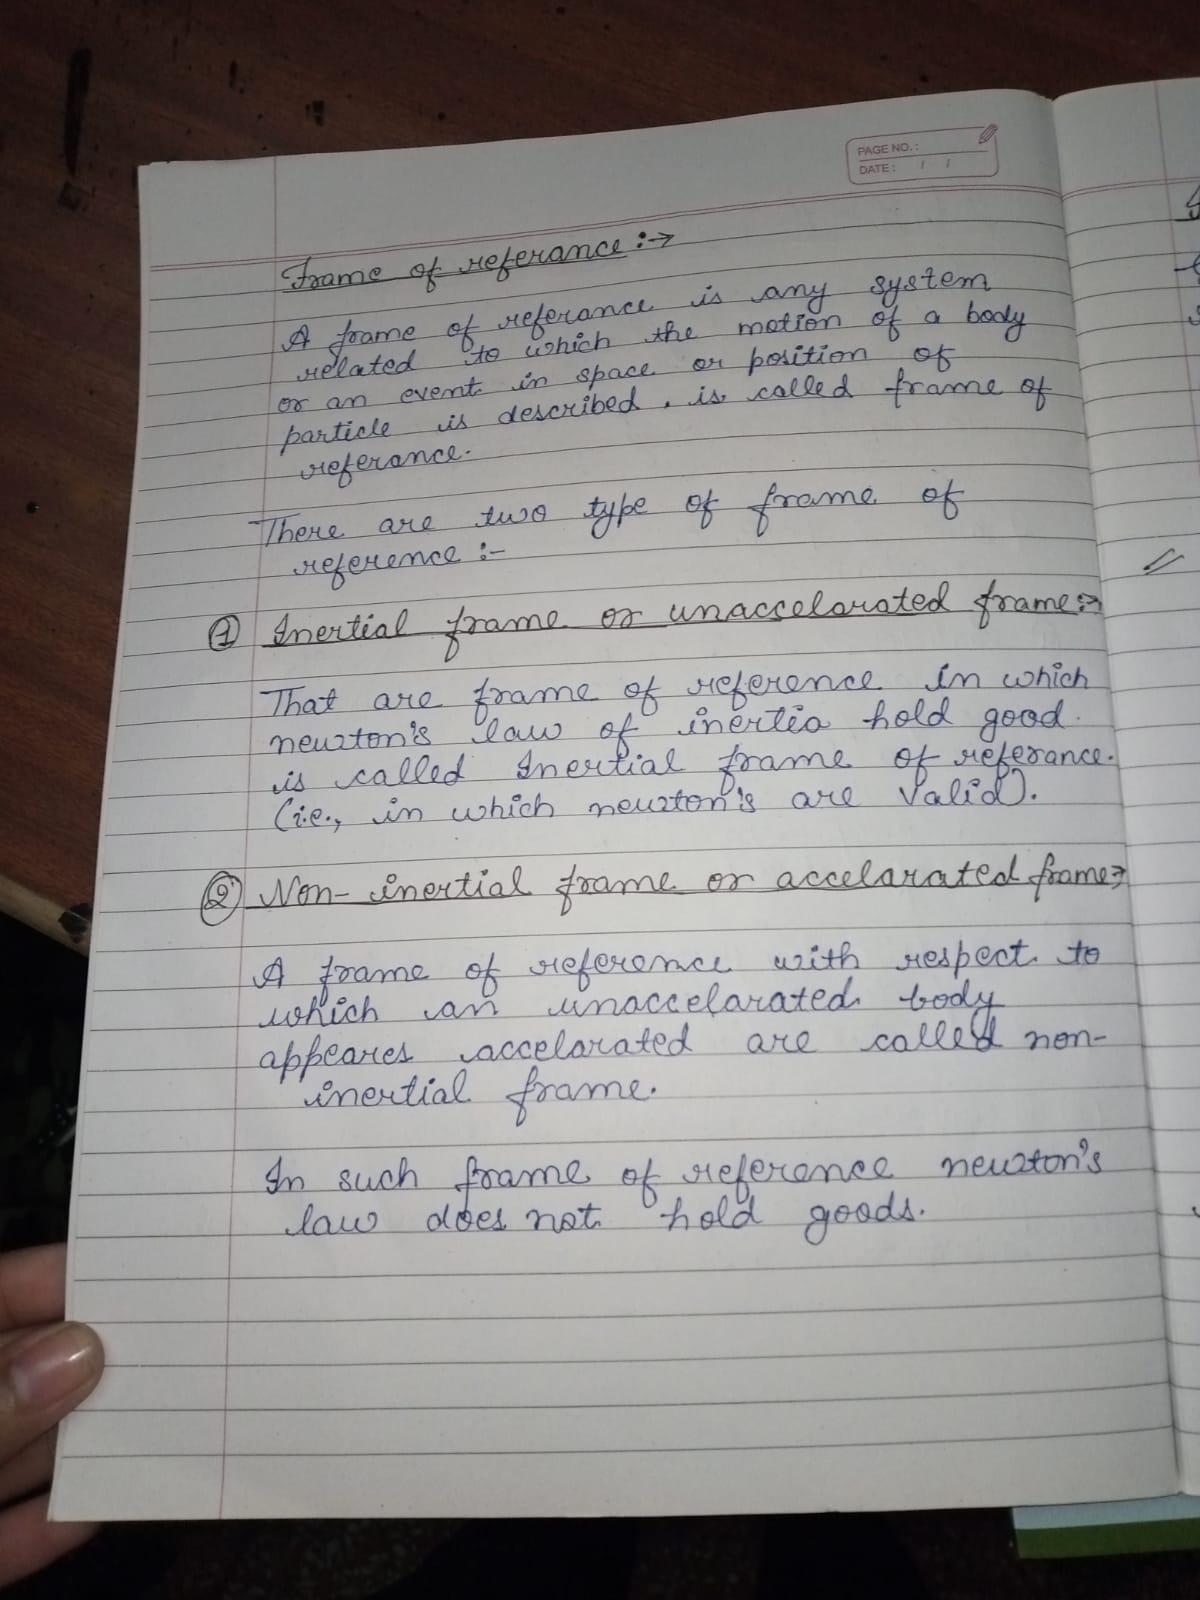 PAGE NO.:
DATE: / /
Frame of referance :→
A frame of referance is any system
related to which the motion of a body
or an event in space or position of
particle is described, is called frame of
referance.
There are two type of frame of
reference :-
① Inertial frame or unaccelarated frame:→
That are frame of reference in which
newzton's law of inertia hold good.
is called Inertial frame of referance.
(i.e., in which newzton's are valid).
② Non-inertial frame or accelarated frame→
A frame of reference with respect to
which an unaccelarated body
appeares accelarated are called non-
inertial frame.
In such frame of reference newzton's
law does not hold goods.